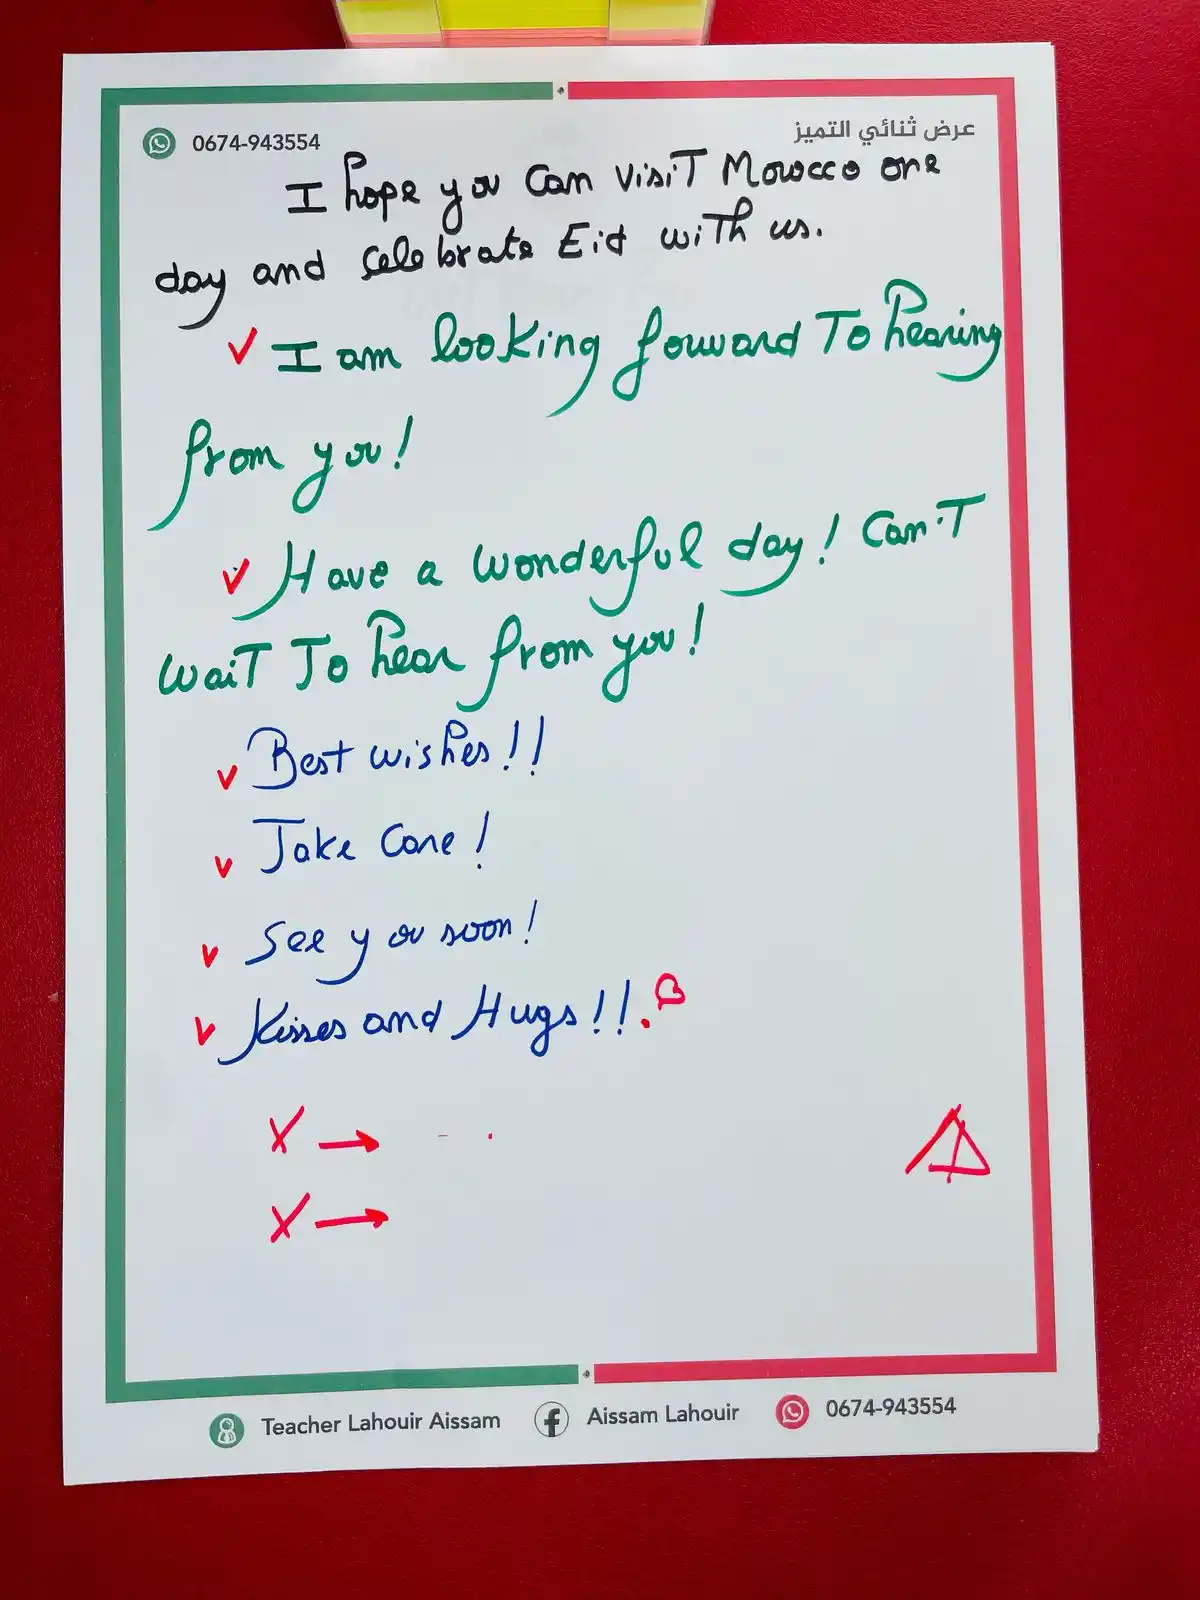 0674-943554
عرض ثنائي التميز
I hope you can visit Morocco one
day and celebrate Eid with us.
✓ I am looking forward To hearing
from you!
✓ Have a wonderful day! Can't
wait To hear from you!
✓ Best wishes!!
✓ Take care!
✓ See you soon!
✓ Kisses and Hugs!!.
X →
X →
Teacher Lahouir Aissam
Aissam Lahouir
0674-943554